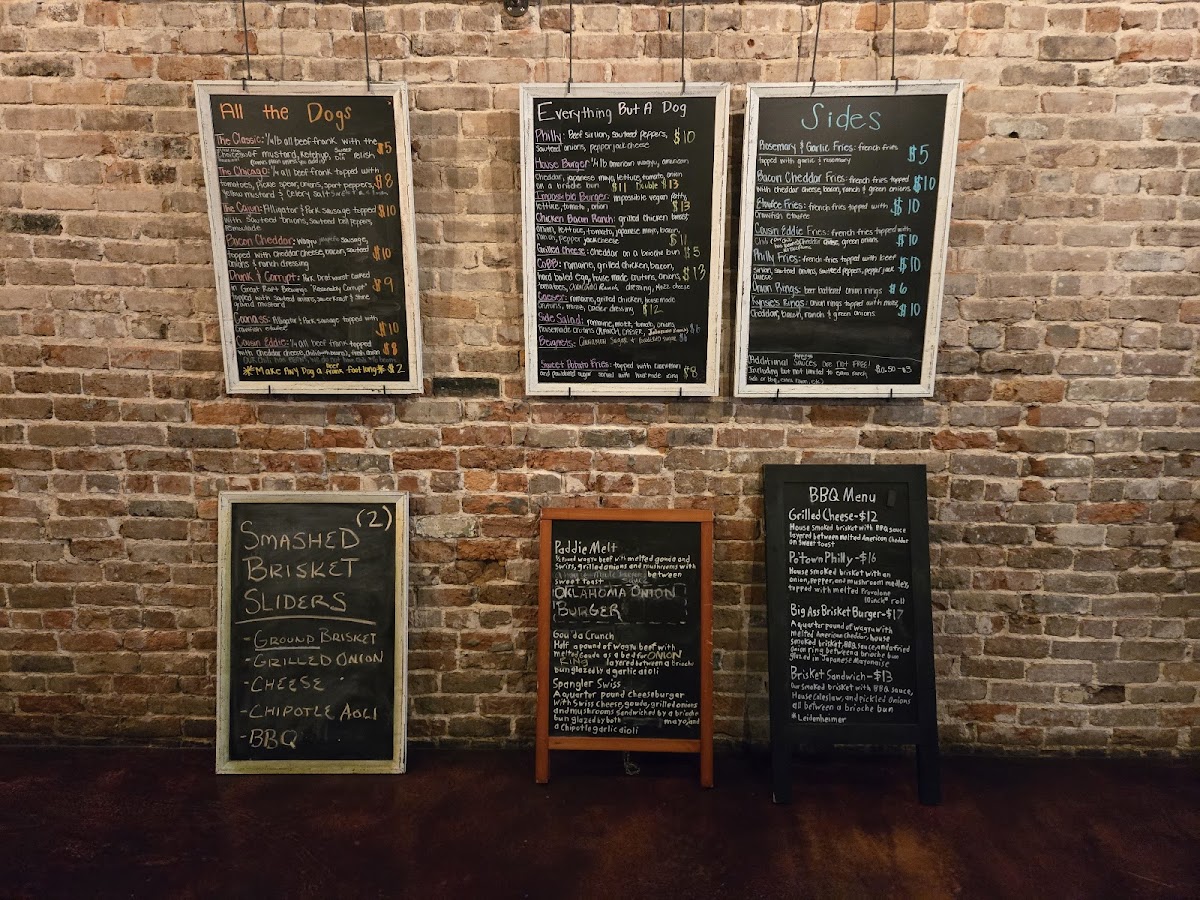 All the Dogs
The Classic: 1/4 lb all beef frank with the
of mustard, ketchup, relish $5
The Chicago: 1/4 all beef frank topped with
tomatoes, pickle spear, onions, sport peppers, $8
yellow mustard & celery salt
The Cajun: Alligator & Pork Sausage topped $10
with sauteed onions, sauteed bell peppers,
remoulade
Bacon Cheddar: Wagyu sausage,
topped with cheddar cheese, bacon, sauteed $10
onions & ranch dressing
Drunk & Corrupt: Pork bratwurst cooked
in Great Raft Brewing's Reasonably Corrupt $9
topped with sauteed onions, sauerkraut & stone
ground mustard
Alligator & Pork sausage topped with
crawfish etoufee $10
Cousin Eddie: 1/4 all beef frank topped
with cheddar cheese, onion $8
*Make Any Dog a beef frank foot long* $2
Everything But A Dog
Philly: Beef sirloin, sauteed peppers, $10
sauteed onions, pepper jack cheese
House Burger 1/4 lb american wagyu, american
cheddar, japanese mayo, lettuce, tomato, onion
on a brioche bun $11 Double $13
Impossible Burger: impossible vegan patty,
lettuce, tomato, onion $13
Chicken Bacon Ranch: grilled chicken breast
onion, lettuce, tomato, japanese mayo, bacon,
ranch, pepper jack cheese $11
Grilled Cheese: cheddar on a brioche bun $5
CoBB: romaine, grilled chicken, bacon,
hard boiled egg, house made crutons, onions, $13
tomatoes, dressing, Mozz cheese
Caeser: romaine, grilled chicken, house made
crutons, caeser dressing $12
Side Salad: romaine, mozz, tomato, onions
housemade crutons (RANCH, CAESER,
Beignets: Cinnamon Sugar & powdered sugar
Sweet Potato Fries: topped with cinnamon
and powdered sugar served with house made icing $8
Sides
Rosemary & Garlic Fries: french fries $5
topped with garlic & rosemary
Bacon Cheddar Fries: french fries topped $10
with cheddar cheese, bacon, ranch & green onions
Etoufee Fries: french fries topped with $10
Crawfish Etoufee
Cousin Eddie Fries: french fries topped with
Chili cheddar cheese, green onions $10
Philly Fries: french fries topped with beef $10
sirloin, sauteed onions, sauteed peppers, pepper jack
cheese
Onion Rings: beer battered onion rings $6
Kynsie's Rings: onion rings topped with
cheddar, bacon, ranch & green onions $10
Additional Sauces are not FREE!
Including but not limited to extra ranch, $0.50-$3
side or bbq, extra etc.)
SMASHED (2)
BRISKET
SLIDERS
-GROUND BRISKET
-GRILLED ONION
-CHEESE
-CHIPOTLE AOLI
-BBQ
Paddie Melt
1/2 Pound wagyu beef with melted gouda and
Swiss, grilled onions and mushrooms with
between
sweet toast
OKLAHOMA ONION
BURGER
Gouda Crunch
Half a pound of wagyu beef with
melted Gouda as a bed for ONION
RING layered between a brioche
bun glazed by a garlic aioli
Spangler Swiss
A quarter pound cheeseburger
with Swiss Cheese, gouda, grilled onions
and mushrooms sandwiched by a brioche
bun glazed by both mayo, and
a Chipotle garlic aioli
BBQ Menu
Grilled Cheese-$12
House smoked brisket with BBQ sauce
layered between melted American Cheddar
on Sweet toast
PoTown Philly-$16
House smoked brisket with an
onion, pepper, and mushroom medley
topped with melted Provalone
10inch* roll
Big Ass Brisket Burger-$17
A quarter pound of wagyu with
melted American Cheddar, house
smoked brisket, BBQ sauce, and a fried
onion ring between a brioche bun
glazed in Japanese Mayonaise
Brisket Sandwich-$13
Our smoked brisket with BBQ sauce,
House Coleslaw, and pickled Onions
all between a brioche bun
*Leidenheimer